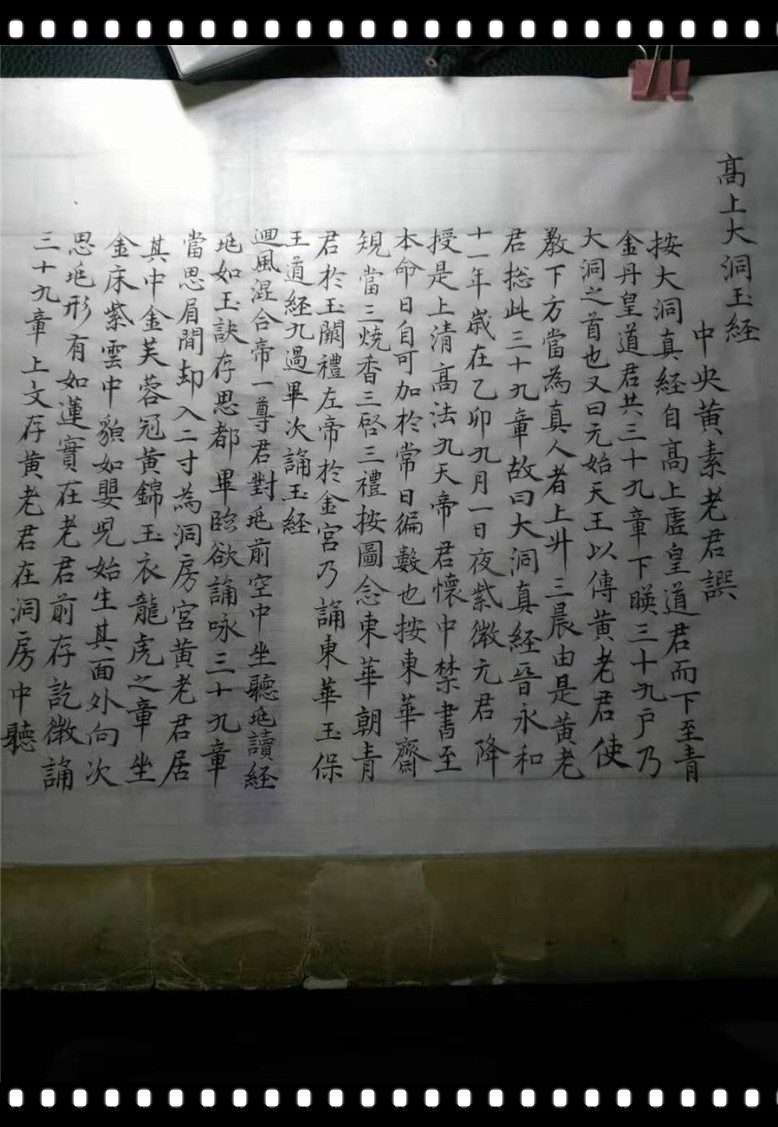 高上大洞玉经
中央黄素老君譔
按大洞真經自高上虛皇道君而下至青
金丹皇道君共三十九章下暎三十九户乃
大洞之首也又曰元始天王以傳黄老君使
教下方當為真人者上升三晨由是黄老
君捴此三十九章故曰大洞真經晉永和
十一年歲在乙卯九月一日夜紫微元君降
授是上清髙法九天帝君懷中禁書至
本命日自可加於常日徧數也按東華齋
䂓當三燒香三啓三禮按圖念東華朝青
君於玉闕禮左帝於金宫乃誦東華玉保
王道經九過畢次誦玉經
廻風混合帝一尊君對 前空中坐聽 讀経
如玉訣存思都畢臨欲誦咏三十九章
當思眉間却入二寸為洞房宫黄老君居
其中金芙蓉冠黄錦玉衣龍虎之章坐
金床紫雲中貌如嬰児始生其面外向次
思 形有如蓮實在老君前存訖微誦
三十九章上文存黄老君在洞房中聽